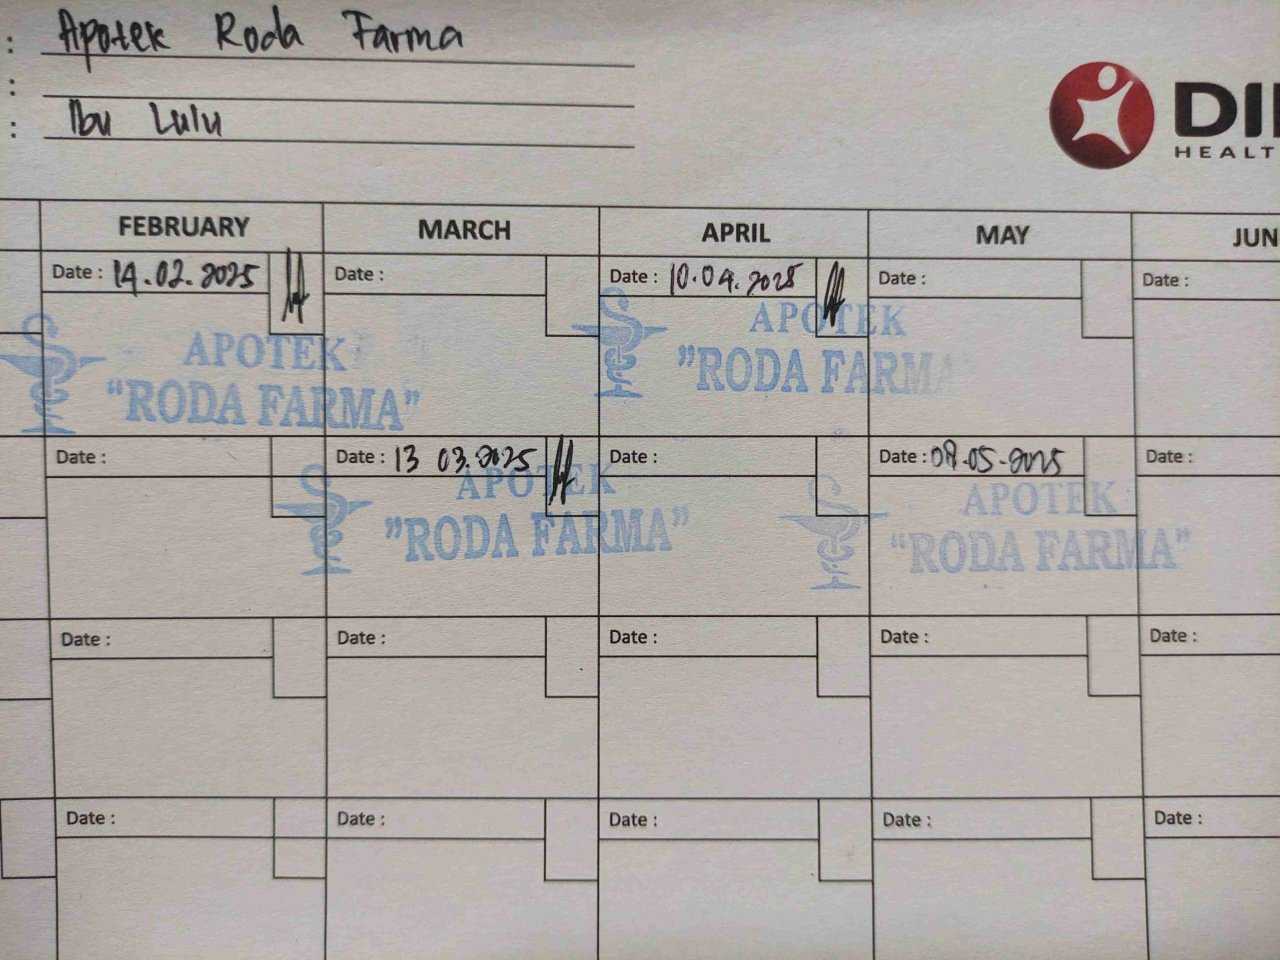 : Apotek Roda Farma
:
: Ibu Lulu
DI
HEALT
FEBRUARY MARCH APRIL MAY JUN
Date : 14.02.2025 Date : Date : 10.04.2025 Date : Date :
APOTEK
"RODA FARMA"
APOTEK
"RODA FARMA
Date : Date : 13 03.2025 Date : Date : 08.05.2025 Date :
APOTEK
"RODA FARMA"
APOTEK
"RODA FARMA"
Date : Date : Date : Date : Date :
Date : Date : Date : Date : Date :